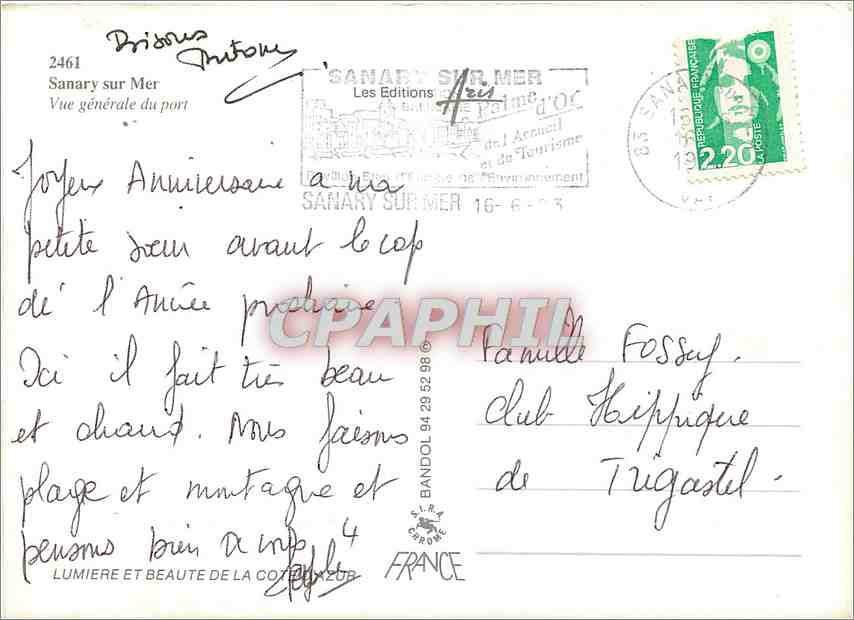 Bisous
Antony
2461
Sanary sur Mer
Vue générale du port
SANARY SUR MER
Les Editions Aris
Palme d'Or
de l'Accueil
et du Tourisme
de l'Environnement
SANARY SUR MER 16-6-93
83 SANARY
VAR
REPUBLIQUE FRANÇAISE
2.20
LA POSTE
Joyeux Anniversaire a ma
petite sœur avant le cap
de l'Année prochaine
Ici il fait très beau
et chaud. Nous faisons
plage et montagne et
pensons bien à vous 4
CPAPHIL
Famille FOSSEY.
Club Hippique
de Trigastel.
BANDOL 94 29 52 98 ©
S.I.R.A.
CHROME
FRANCE
LUMIERE ET BEAUTE DE LA COTE D'AZUR